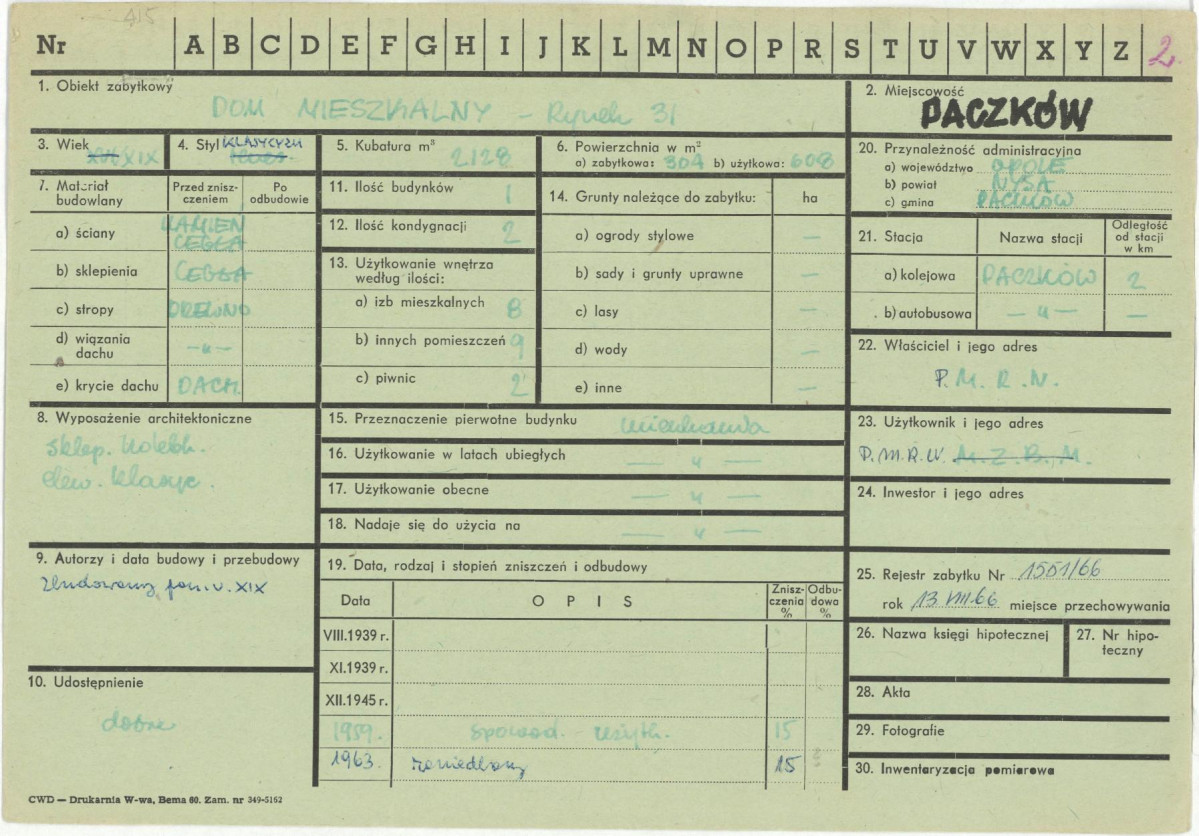 415
Nr A B C D E F G H I J K L M N O P R S T U V W X Y Z 2.
1. Obiekt zabytkowy
DOM MIESZKALNY – Rynek 31
2. Miejscowość
PACZKÓW
3. Wiek
XIX
4. Styl KLASYCYZM
5. Kubatura m³ 2128
6. Powierzchnia w m²
a) zabytkowa: 304 b) użytkowa: 608
20. Przynależność administracyjna
a) województwo OPOLE
b) powiat NYSA
c) gmina PACZKÓW
7. Materiał budowlany
Przed zniszczeniem
Po odbudowie
a) ściany KAMIEŃ
CEGŁA
b) sklepienia CEGŁA
c) stropy DREWNO
d) wiązania dachu –„–
e) krycie dachu DACH.
11. Ilość budynków 1
12. Ilość kondygnacji 2
13. Użytkowanie wnętrza
według ilości:
a) izb mieszkalnych 8
b) innych pomieszczeń 9
c) piwnic 2
14. Grunty należące do zabytku: ha
a) ogrody stylowe –
b) sady i grunty uprawne –
c) lasy –
d) wody –
e) inne –
21. Stacja
Nazwa stacji
Odległość od stacji w km
a) kolejowa PACZKÓW 2
b) autobusowa – „ – –
22. Właściciel i jego adres
P. M. R. N.
8. Wyposażenie architektoniczne
sklep. kolebk.
elew. klasyc.
15. Przeznaczenie pierwotne budynku mieszkania
16. Użytkowanie w latach ubiegłych — „ —
17. Użytkowanie obecne — „ —
18. Nadaje się do użycia na — „ —
23. Użytkownik i jego adres
P.M.R.N. M.Z.B.M.
24. Inwestor i jego adres
9. Autorzy i data budowy i przebudowy
Zbudowany XIX
19. Data, rodzaj i stopień zniszczeń i odbudowy
Data
O P I S
Zniszczenia %
Odbudowa %
VIII.1939 r.
XI.1939 r.
XII.1945 r.
1959. spowod. użytk. 15
1963. zaniedbany 15
10. Udostępnienie
dobre
25. Rejestr zabytku Nr 1551/66
rok 13 VIII.66 miejsce przechowywania
26. Nazwa księgi hipotecznej
27. Nr hipoteczny
28. Akta
29. Fotografie
30. Inwentaryzacja pomiarowa
CWD — Drukarnia W-wa, Bema 60. Zam. nr 349-5162